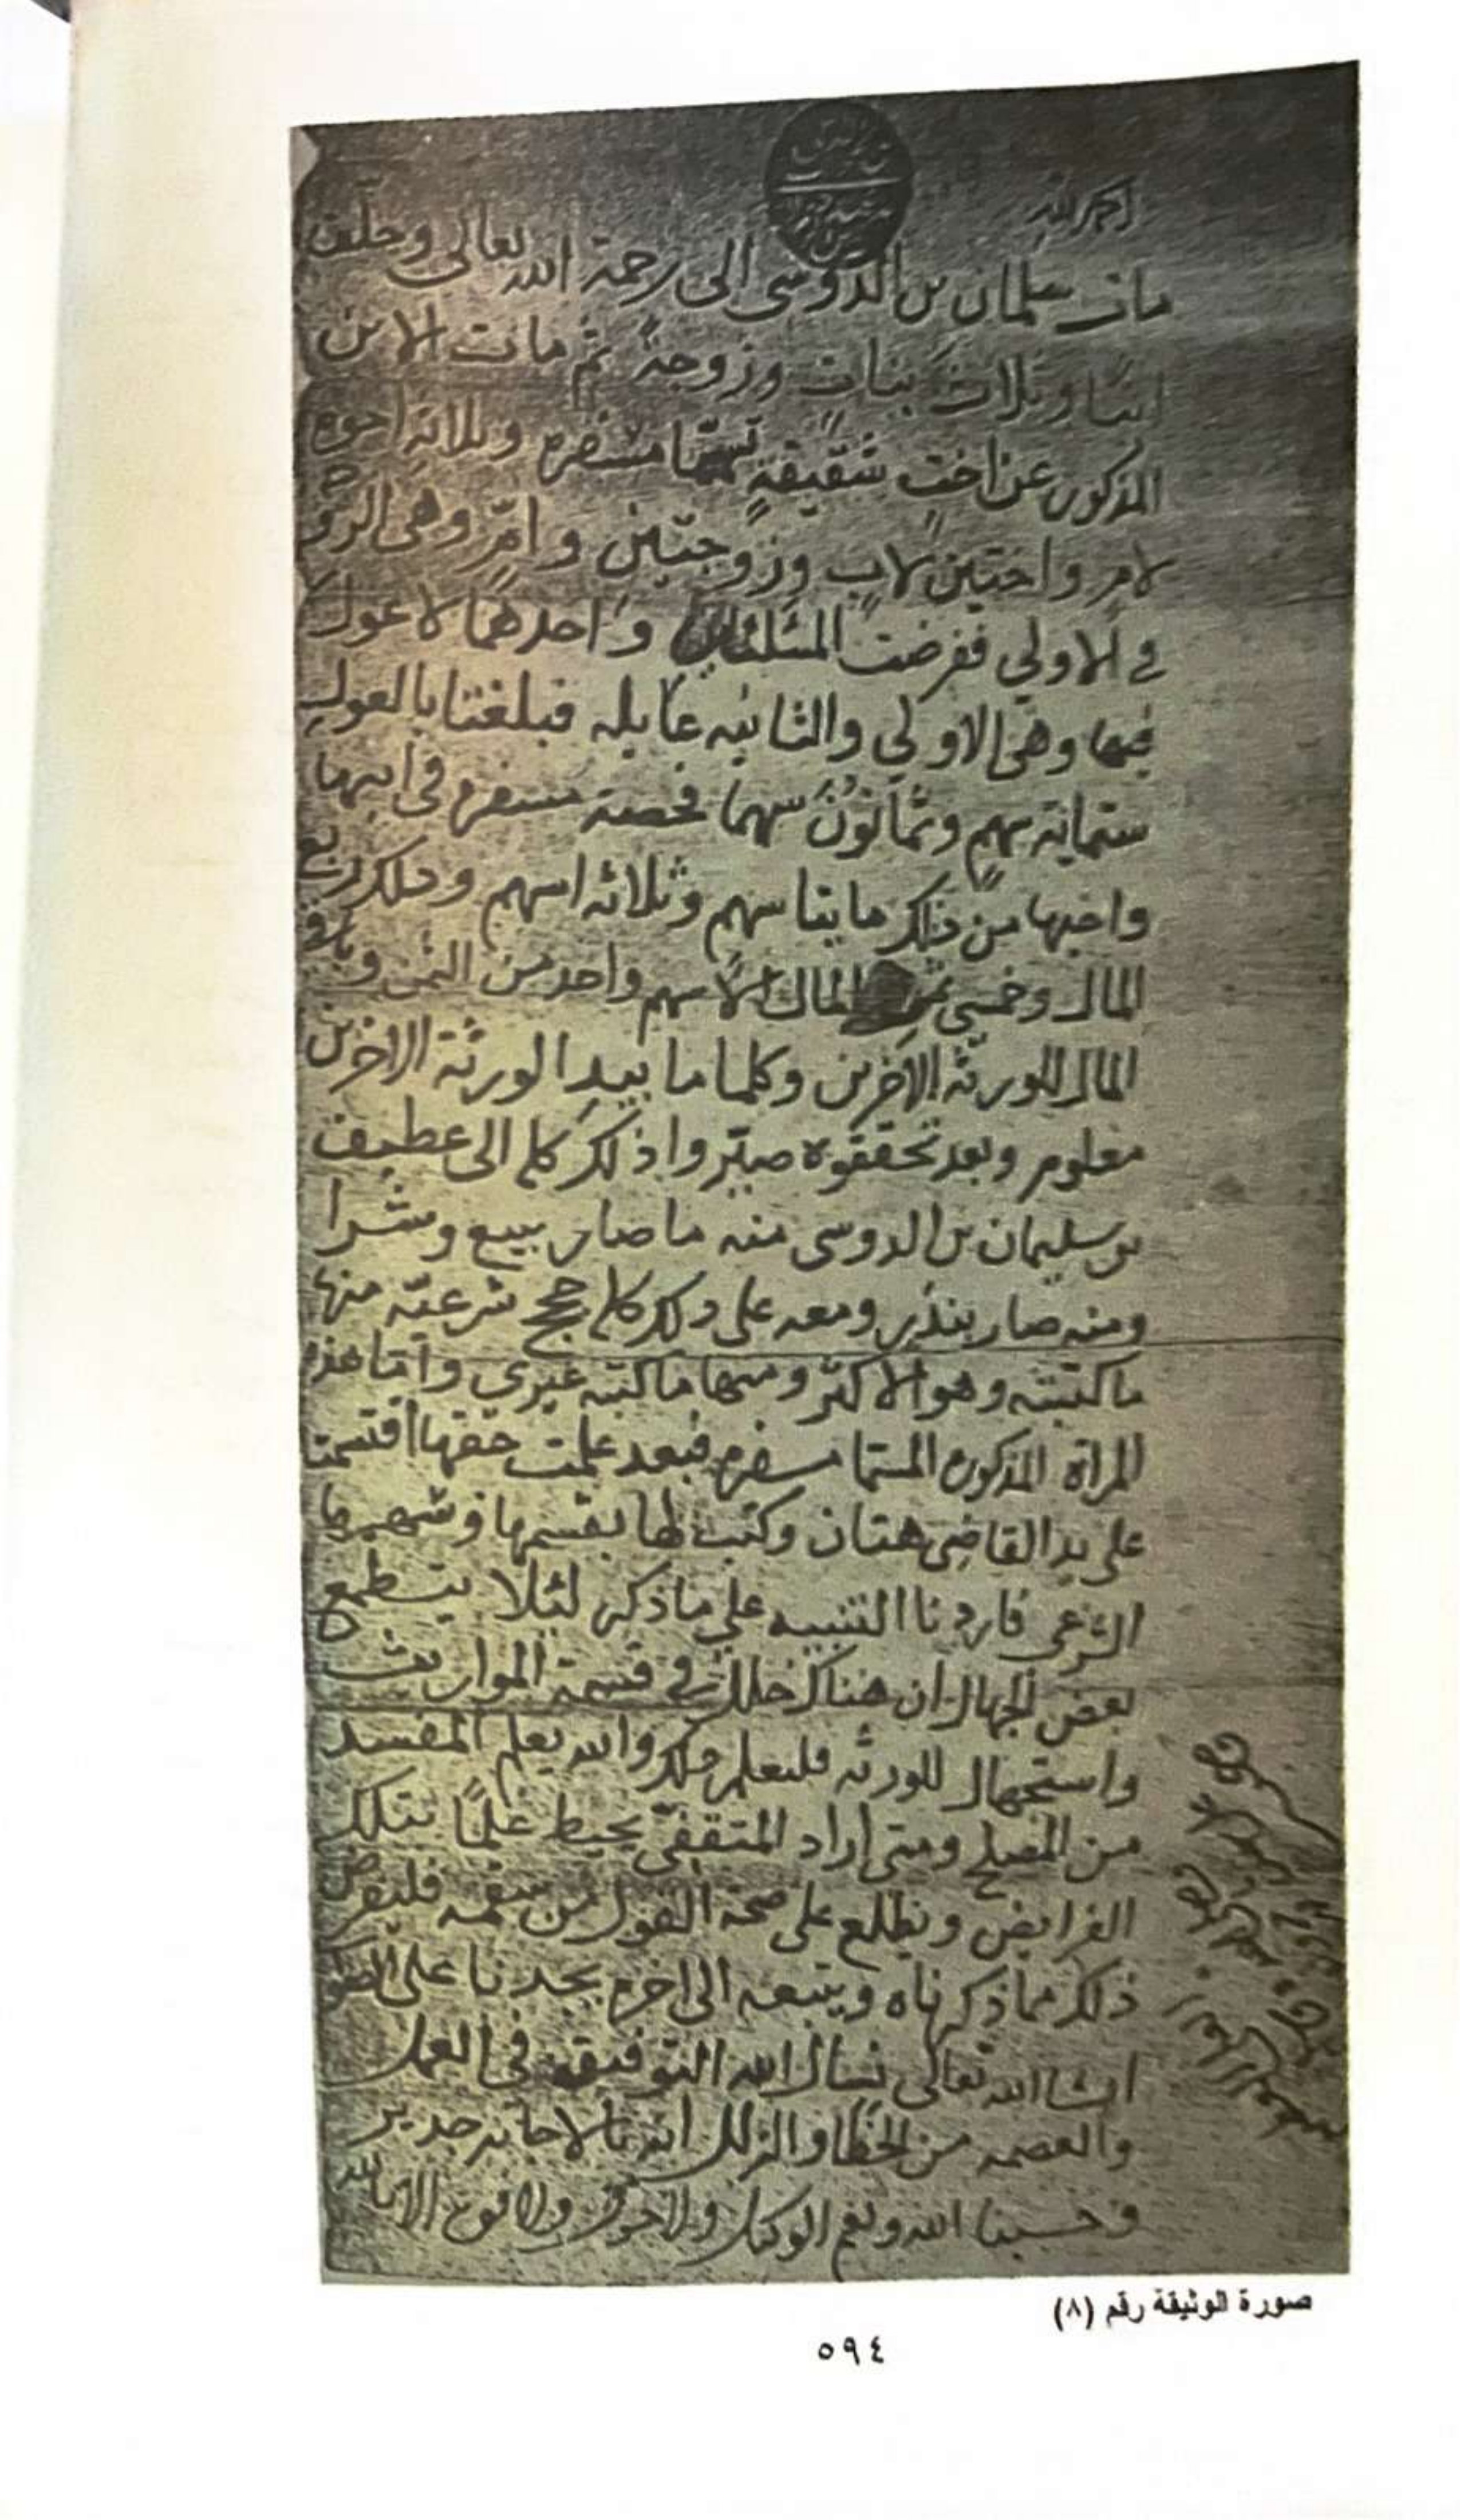 الحمد لله
مات سلمان بن الدوسي الى رحمة الله تعالى وخلف
ابنًا وثلاث بنات وزوجة ثم مات الابن
المذكور عن اخت شقيقة تسمّا مسفره وثلاثة اخوه
لام واختين لاب وزوجتين وامّ وهي الزو
في الاولي ففرضت المسئلتان واحدهما لا عول
فيها وهي الاولي والثانيه عايله فبلغتا بالعول
ستماية سهم وثمانون سهما فحصة مسفره في ابيها
واخيها من ذلك مايتا سهم وثلاثه اسهم وذلك ربع
المال وخمسي ثمن المال الا سهم واحد من الثمن وباقي
المال للورثه الاخرين وكلما ما بيد الورثة الاخرين
معلوم وبعد تحققوه صيّروا ذلك كله الى عطيف
بن سليمان بن الدوسي منه ما صار ببيع وشرا
ومنه صار بنذر ومعه على ذلك كله حجج شرعيّه منها
ما كتبته وهو الاكثر ومنها ما كتبه غيري وامّا هذه
المراة المذكوره المسمّا مسفره فبعد علمت حقها اقتسمت
على يد القاضي هتان وكتب لها بقسمها وشهيرها
الشرعي فاردنا التنبيه على ما ذكر لئلا يتطمع
بعض الجهال ان هناك خلل في قسمة المواريث
واستجهال للورثه فليعلم ذلك والله يعلم المفسد
من المصلح ومتى اراد المتفقّي يحيط علمًا بتلك
الفرايض ويطلع على صحة القول من سقمه فليفرض
ذلك مما ذكرناه ويتبعه الى اخره يجدنا على
انشا الله تعالى نسال الله التوفيق في العمل
والعصمه من الخطا والزلل انه بالاجابه جدير
وحسبنا الله ونعم الوكيل ولا حول ولا قوة الا بالله
صورة الوثيقة رقم (٨)
٥٩٤